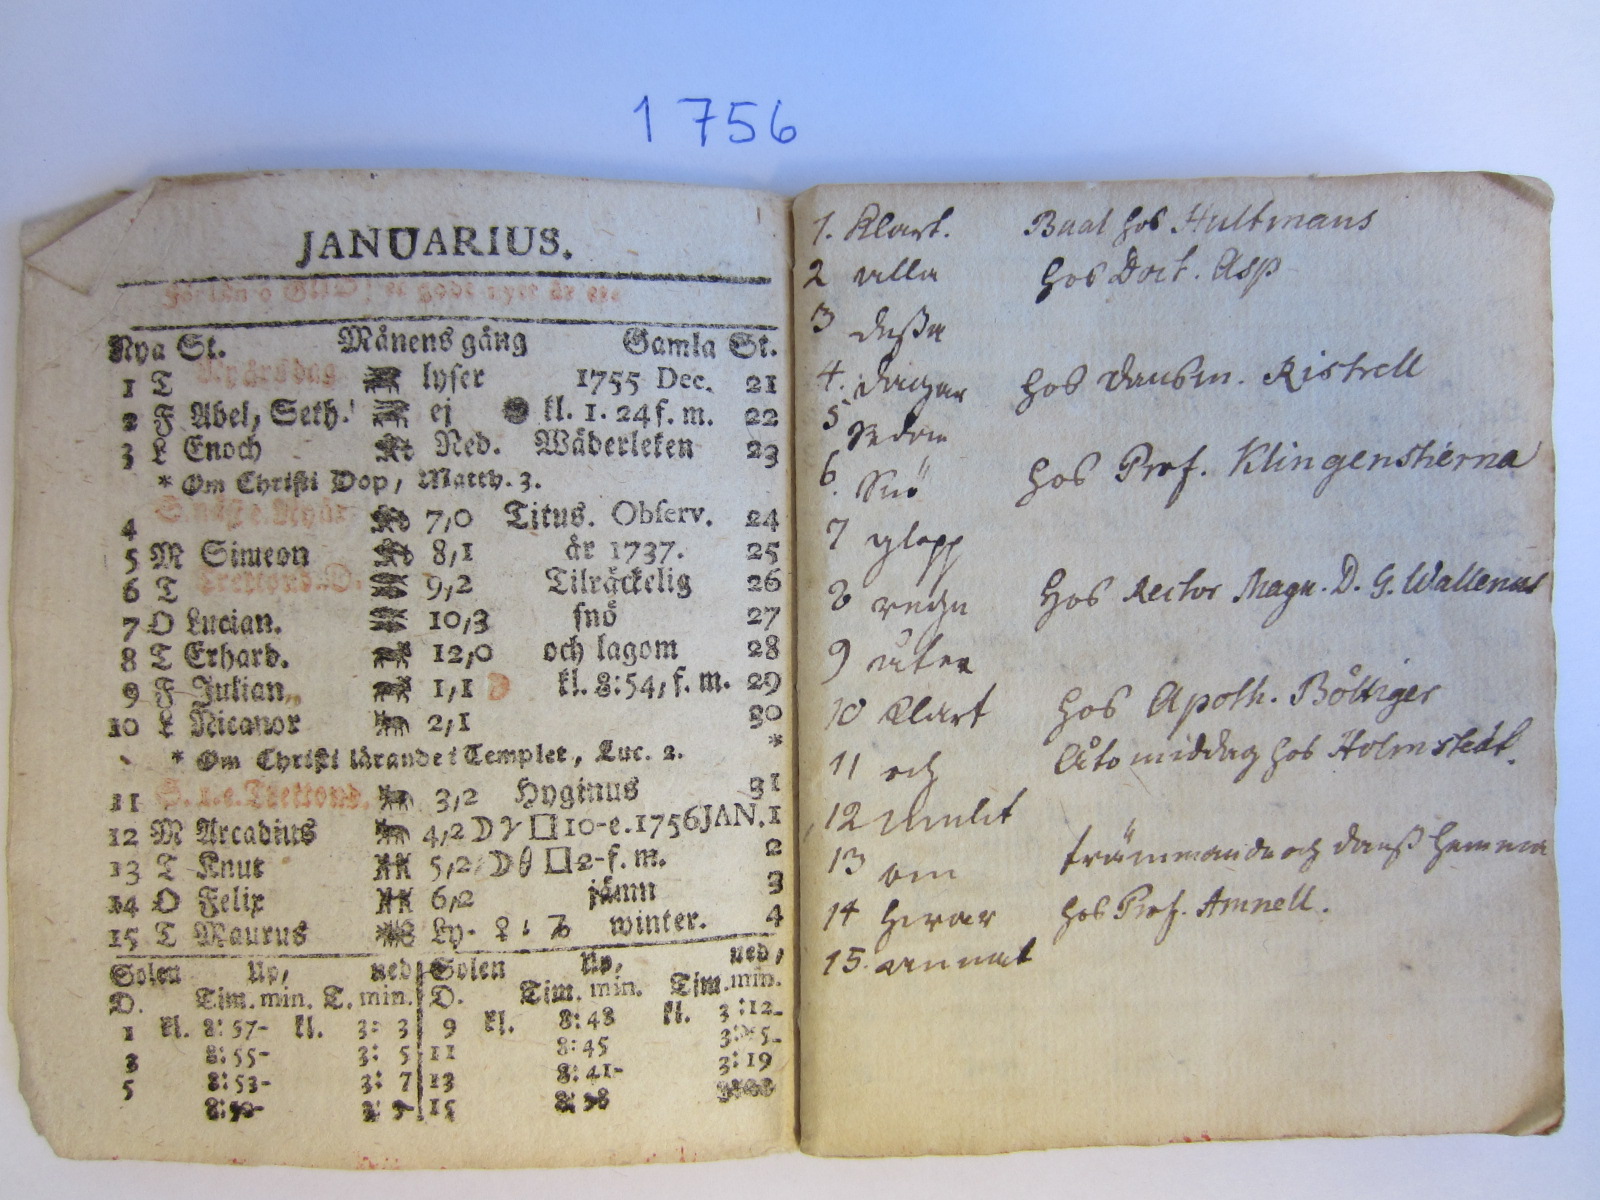 1756
JANUARIUS.
Förlän o GUD! et godt nytt år
Nya St. Månens gång Gamla St.
1 T Nyårsdag lyser 1755 Dec. 21
2 F Abel, Seth. ej kl. 1. 24 f. m. 22
3 L Enoch Ned. Wäderleken 23
* Om Christi Dop, Matth. 3.
4 7,0 Titus. Observ. 24
5 M Simeon 8,1 år 1737. 25
6 T Trettond. D. 9,2 Tilräckelig 26
7 O Lucian. 10,3 snö 27
8 T Erhard. 12,0 och lagom 28
9 F Julian. 1,1 kl. 8:54, f. m. 29
10 L Nicanor 2,1 30
* Om Christi lärande i Templet, Luc. 2. *
11 S. 1. e. Trettond. 3,2 Hyginus 31
12 M Arcadius 4,2 ☽ ♈ □ 10-e. 1756 JAN. 1
13 T Knut 5,2 ☽ □ 2-f. m. 2
14 O Felix 6,2 jämn 3
15 T Maurus Ly- ♀ winter. 4
Solen Up, ned Solen Up, ned,
D. Tim. min. T. min. D. Tim. min. Tim. min.
1 kl. 8:57- kl. 3: 3 9 kl. 8:48 kl. 3:12-
3 8:55- 3: 5 11 8:45 3:15-
5 8:53- 3: 7 13 8:41- 3:19
15 8:38
1. Klart. Baal hos Hultmans
2 alla hos Doct. Asp
3 deßa
4. dagar hos Ristrell
5. sedan
6. Snö hos Prof. Klingenstierna
7 glopp
8 regn hos Rector Magn. D. G. Wallerius
9 uten
10 Klart hos Apoth. Böttiger
11 och Åto middag hos Holmstedt.
12 mulit
13 om främmande och danß hemma
14 hos Prof. Amnell.
15. annat